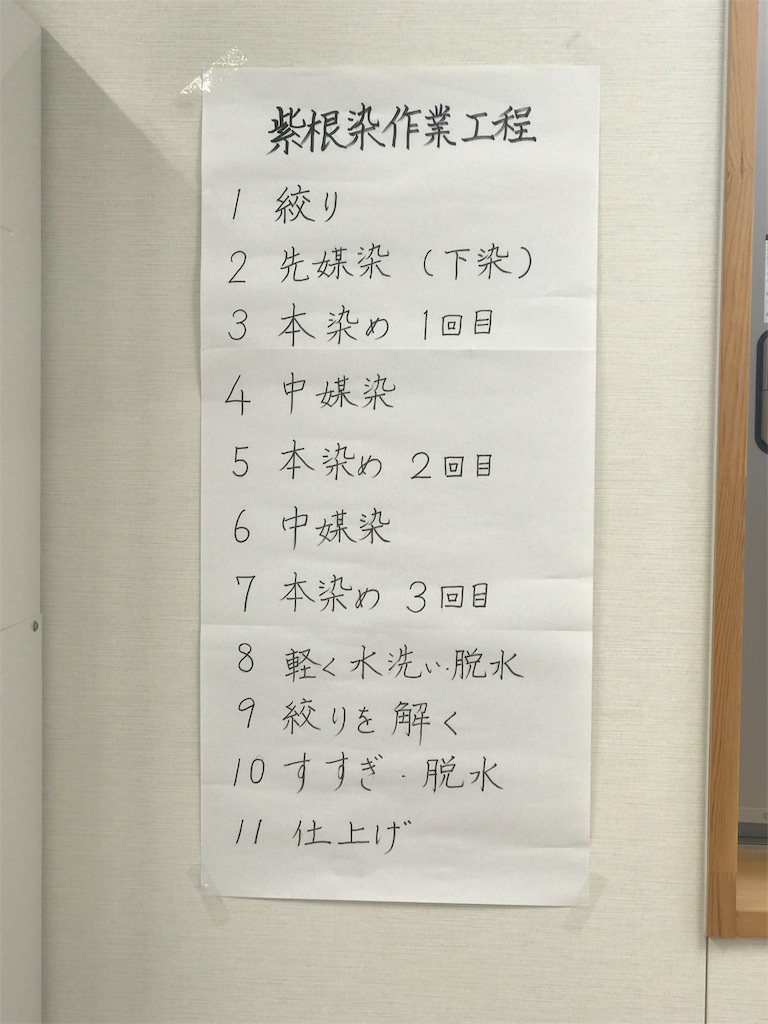 紫根染作業工程
1 絞り
2 先媒染 (下染)
3 本染め 1回目
4 中媒染
5 本染め 2回目
6 中媒染
7 本染め 3回目
8 軽く水洗い・脱水
9 絞りを解く
10 すすぎ・脱水
11 仕上げ